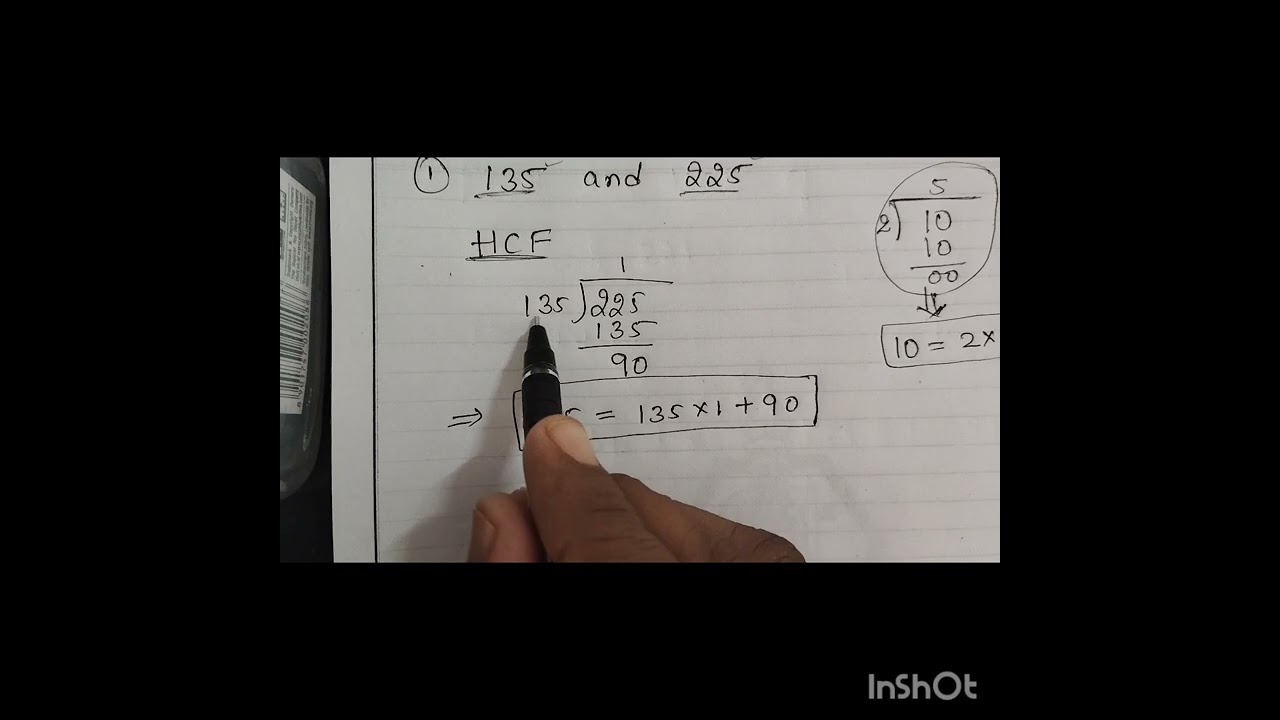 ① 135 and 225
HCF
1
135)225
135
90
⇒ = 135×1+90
5
2)10
10
00
⇓
10 = 2×
InShOt